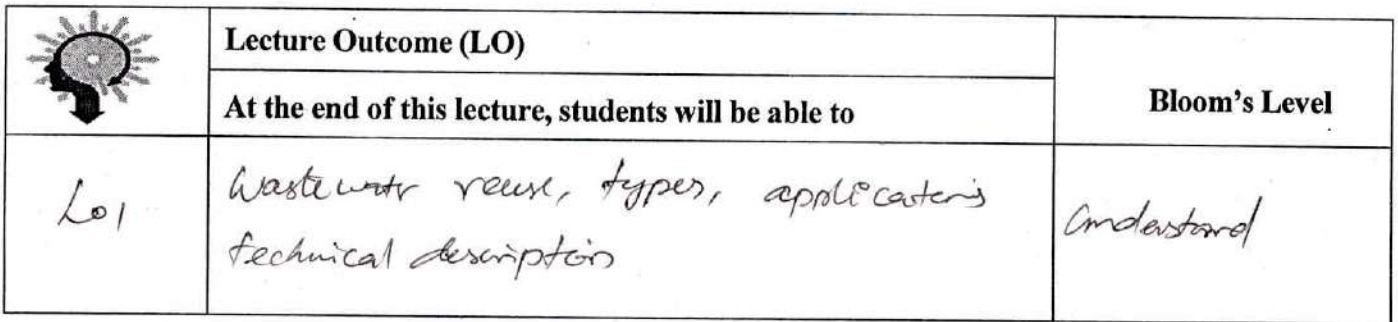 Lecture Outcome (LO)
At the end of this lecture, students will be able to
Bloom's Level
LO1
Wastewatr reuse, types, applications
technical description
Understand